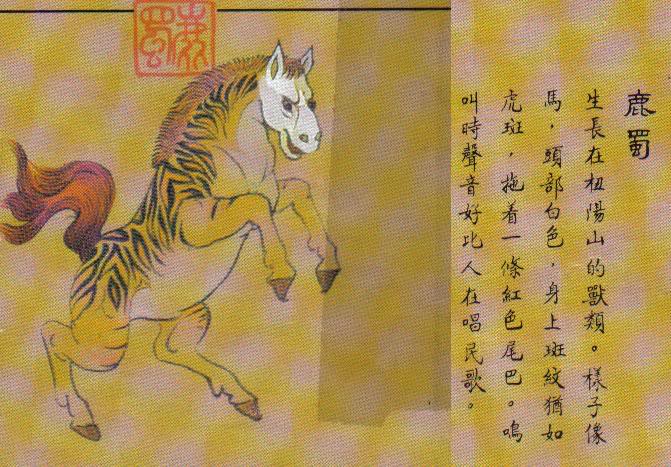 鹿蜀
生長在杻陽山的獸類。樣子像
馬，頭部白色，身上斑紋猶如
虎斑，拖着一條紅色尾巴。鳴
叫時聲音好比人在唱民歌。